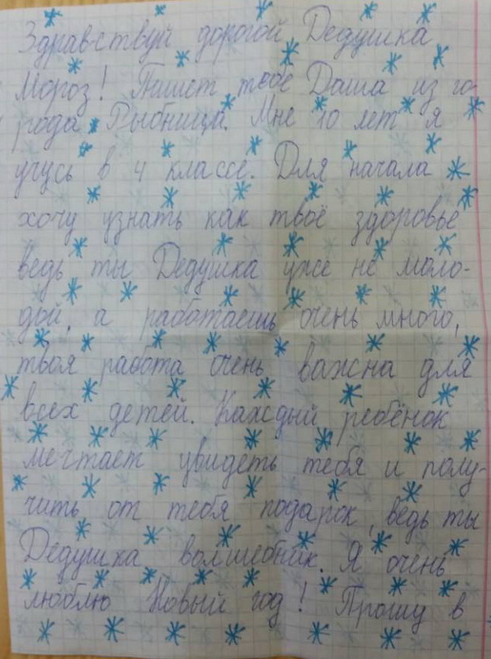 Здравствуй дорогой Дедушка
Мороз! Пишет тебе Даша из го-
рода Рыбница. Мне 10 лет я
учусь в 4 классе. Для начала
хочу узнать как твоё здоровье
ведь ты Дедушка уже не моло-
дой, а работаешь очень много,
твоя работа очень важна для
всех детей. Каждый ребёнок
мечтает увидеть тебя и полу-
чить от тебя подарок, ведь ты
Дедушка волшебник. Я очень
люблю Новый год! Прошу в